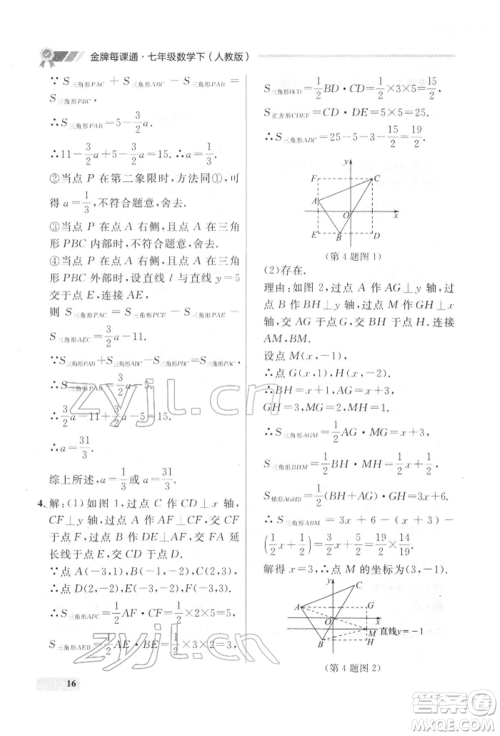 金牌每课通·七年级数学下(人教版)
∵S三角形PAC=S三角形PAB+S三角形PBC,
∴S三角形PAB=5-3/2a,
∴11-3/2a+5-3/2a=15.∴a=1/3.
②当点P在第二象限时,方法同①,可
得a=1/3,不符合题意,舍去.
③当点P在点A右侧,且点A在三角
形PBC内部时,不符合题意,舍去.
④当点P在点A右侧,且点A在三角形
PBC外部时,设直线l与直线y=5
交于点E,连接AE.
则S三角形PAC=3/2a,S三角形PAE=5,
S三角形AEC=3/2a-11.
∵S三角形PAB+S三角形PAE=S三角形PBE,
∴S三角形PAB=3/2a-5.
∴3/2a-11+3/2a-5=15.
∴a=31/3.
综上所述,a=1/3或a=31/3.
4.解:(1)如图1,过点C作CD⊥x轴,
CF⊥y轴,过点A作AF⊥x轴,
过点B作BD⊥y轴,CF交FA延
长线于点F,CD交BD于点D.
∵点A(-3,1),点B(-1,-2),点
C(2,3),∴点D(2,-2),点F(-3,3).
∴S三角形AFC=1/2AF·CF=1/2×2×5=5,
S三角形AEB=1/2AE·BE=1/2×3×2=3,
16
S三角形BCD=1/2BD·CD=1/2×3×5=15/2,
S正方形CDEF=CF·CD=5×5=25.
∴S三角形ABC=25-5-3-15/2=19/2.
y
F
C
A
O
x
E
B
D
(第4题图1)
(2)存在.
理由:如图2,过点A作AG⊥y轴,过
点B作BH⊥y轴,过点M作GH⊥x
轴,交AG于点G,交BH于点H,连接
AM,BM.
设点M(x,-1),
∴点G(x,1),点H(x,-2).
∴BH=x+1,AG=x+3,
GH=3,MG=2,MH=1.
∴S三角形AGM=1/2AG·MG=x+3,
S三角形BHM=1/2BH·MH=1/2x+1/2,
S梯形AGHB=1/2(AG+BH)·GH=3x+6.
∴S三角形ABM=3x+6-(x+3)
-(1/2x+1/2)=19/4+1/4,
解得x=3,∴点M的坐标为(3,-1).
y
C
A
G
O
x
M
直线y=-1
B
H
(第4题图2)
zyjl.cn
zyjl.cn
答案圈
MXQE.COM